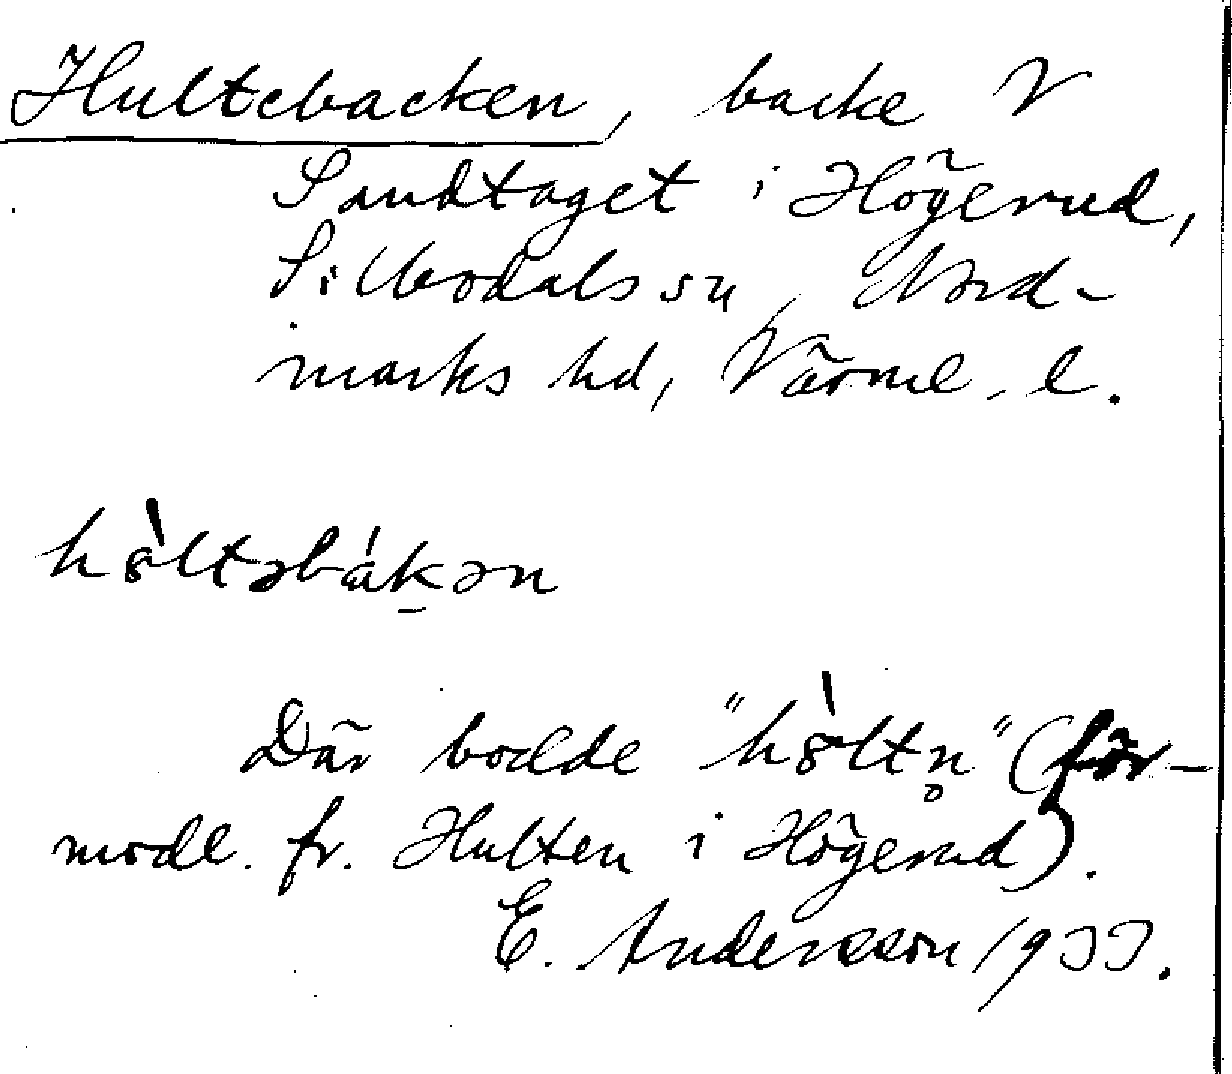 Hultebacken, backe V
Sandtaget i Högerud,
Silbodals sn, Nord-
marks hd, Värml. l.
hȯ̀ltəbákən
Där bodde "hȯ̀ltn̥" (för-
modl. fr. Hulten i Högerud).
E. Andersson 1933.